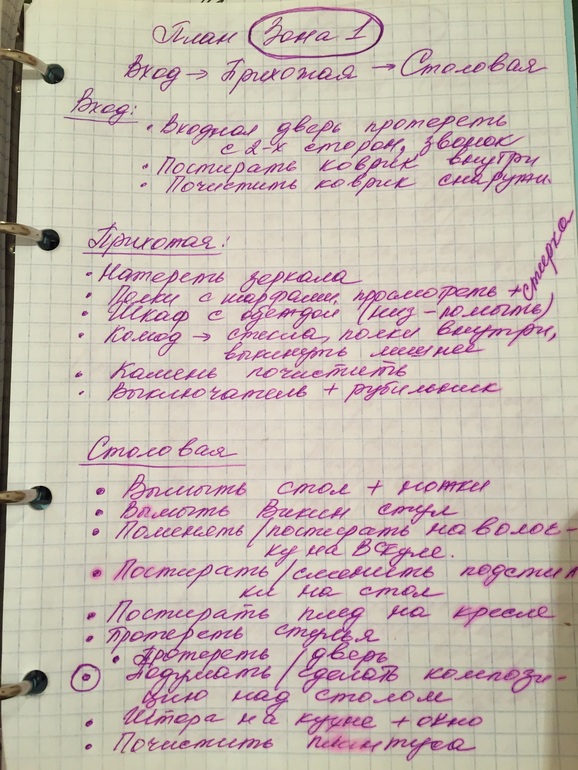 План Зона 1
Вход → Прихожая → Столовая
Вход:
• Входная дверь протереть
с 2-х сторон, звонок
• Постирать коврик внутри
• Почистить коврик снаружи
Прихожая:
• Натереть зеркала
• Полки с шарфами, просмотреть + стирка
• Шкаф с одеждой (низ - помыть)
• Комод → стекла, полки внутри,
выкинуть лишнее
• Камень почистить
• Выключатель + рубильник
Столовая
• Вымыть стол + ножки
• Вымыть Викин стул
• Поменять / постирать наволоч-
ку на
• Постирать / сменить подстил
ки на стол
• Постирать плед на кресле
• Протереть стулья
• Протереть дверь
• Подумать / сделать компози-
цию над столом
• Штора на кухне + окно
• Почистить плинтуса